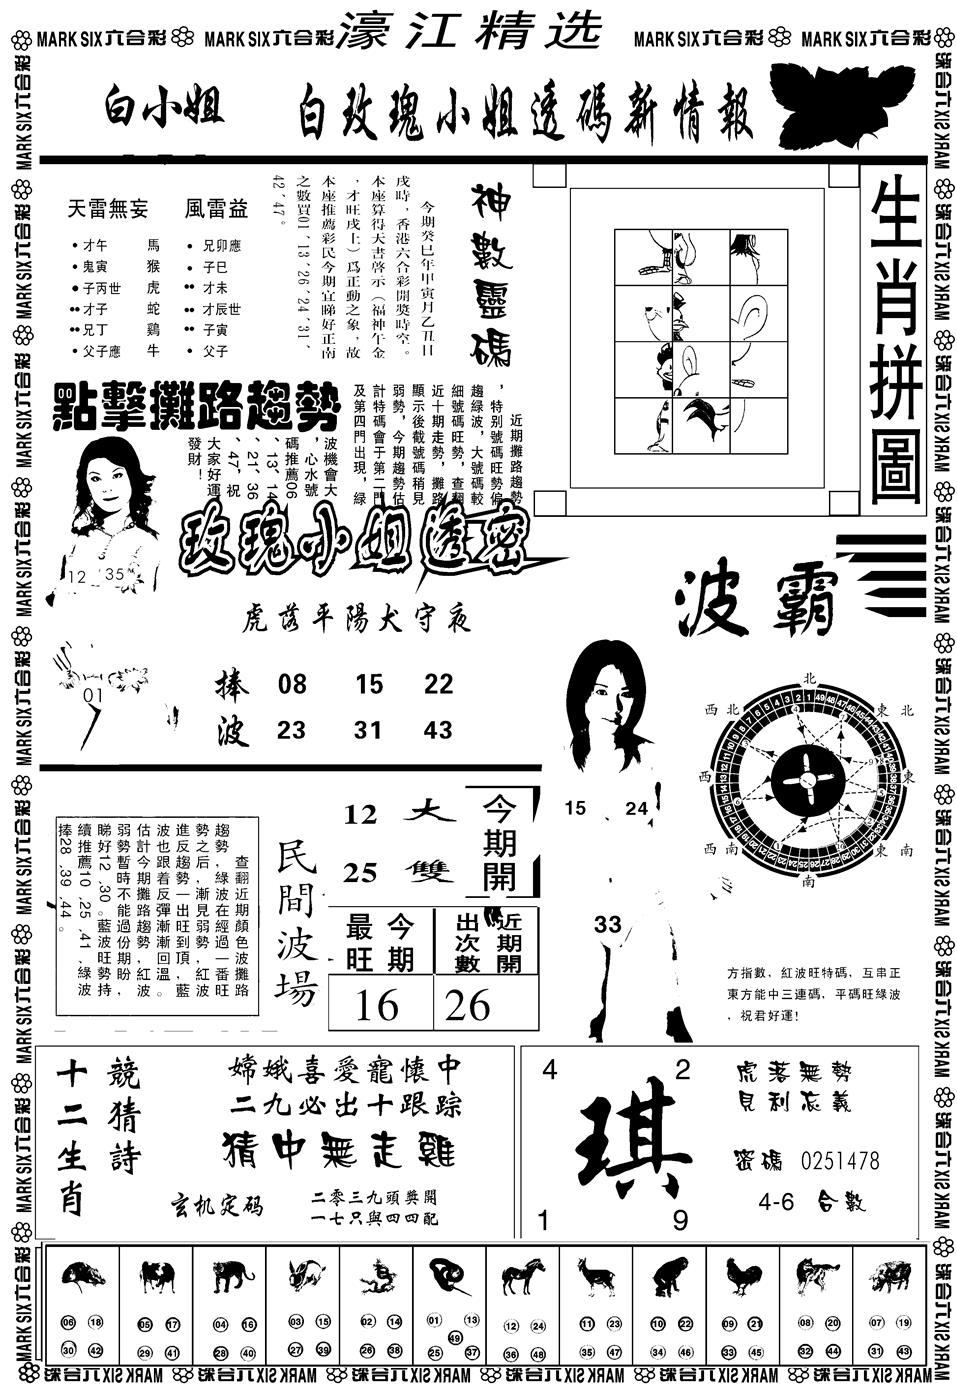 MARK SIX六合彩 MARK SIX六合彩 濠江精选 MARK SIX六合彩 MARK SIX六合彩
白小姐 白玫瑰小姐透碼新情報
天雷無妄 風雷益
•才午 馬 •兄卯應
•鬼寅 猴 •子巳
●子丙世 虎 ••才未
••才子 蛇 ••才辰世
••兄丁 鷄 ••子寅
•父子應 牛 •父子
神數靈碼
今期癸巳年甲寅月乙丑日
戌時，香港六合彩開獎時空。
本座算得天書啓示（福神午金
，才旺戌上）爲正動之象，故
本座推薦彩民今期宜睇好正南
之數買01、13、26、24、31、
42、47。
生肖拼圖
點擊攤路趨勢
近期攤路趨勢
，特别號碼旺勢偏
趨綠波，大號碼較
細號碼旺勢，查翻
近十期走勢，攤路
顯示後截號碼稍見
弱勢，今期趨勢估
計特碼會于第二門
及第四門出現，綠
波機會大
，心水號
碼推薦06
、13、14
、21、36
、47，祝
大家好運
發財！
12 35
01
玫瑰小姐透密
虎落平陽犬守夜
捧波
08 15 22
23 31 43
波霸
北
西北 東北
西 東
西南 東南
南
15 24
33
方指數，紅波旺特碼，互串正
東方能中三連碼，平碼旺綠波
，祝君好運！
查翻近期顔色波攤路
趨勢，綠波在經過一番旺
勢之后，漸見弱勢，紅波
進反趨勢一出旺到頂，藍
波也跟着反彈漸漸回溫。
估計今期攤路趨勢，紅波
弱勢暫時不能過份期盼，
睇好12、30。藍波旺勢持
續推薦10、25、41，綠波
捧28、39、44。
民間波場
12 大
25 雙
今期開
最旺 今期
出次數 近期開
16 26
十二生肖
競猜詩
嫦娥喜愛寵懷中
二九必出十跟踪
猜中無走雞
玄机定码
二零三九頭獎開
一七只與四四配
4 2
琪
1 9
虎落無勢
見利忘義
密碼 0251478
4-6 合數
06 18 05 17 04 16 03 15 02 14 01 13 12 24 11 23 10 22 09 21 08 20 07 19
49
30 42 29 41 28 40 27 39 26 38 25 37 36 48 35 47 34 46 33 45 32 44 31 43